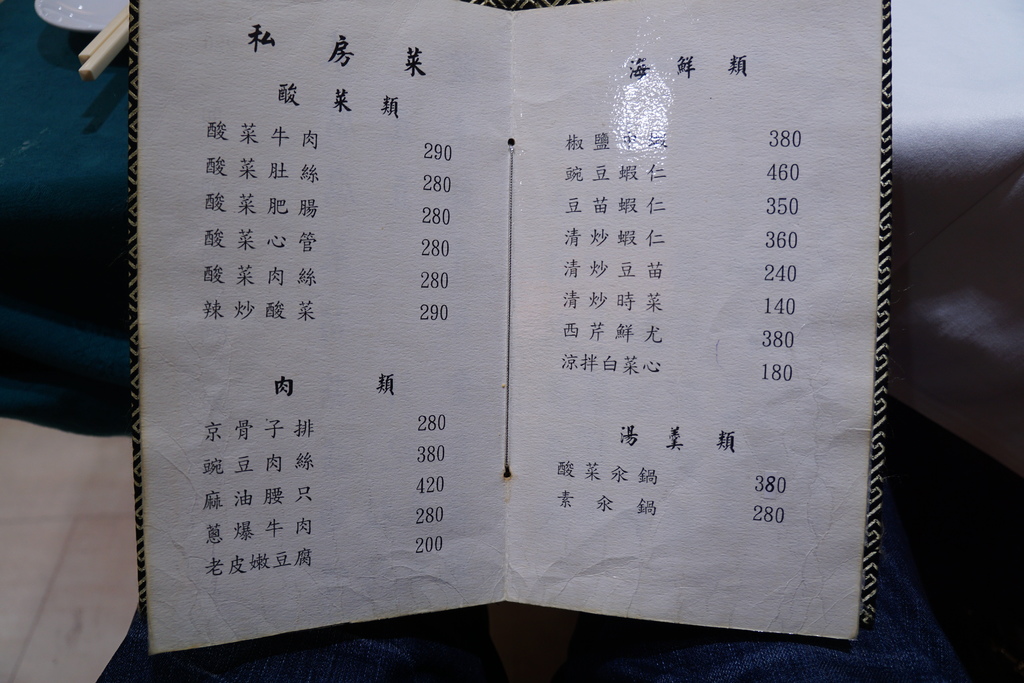 私房菜
酸菜類
酸菜牛肉 290
酸菜肚絲 280
酸菜肥腸 280
酸菜心管 280
酸菜肉絲 280
辣炒酸菜 290
肉類
京骨子排 280
豌豆肉絲 380
麻油腰只 420
蔥爆牛肉 280
老皮嫩豆腐 200
海鮮類
椒鹽 蝦 380
豌豆蝦仁 460
豆苗蝦仁 350
清炒蝦仁 360
清炒豆苗 240
清炒時菜 140
西芹鮮尤 380
涼拌白菜心 180
湯羹類
酸菜汆鍋 380
素汆鍋 280